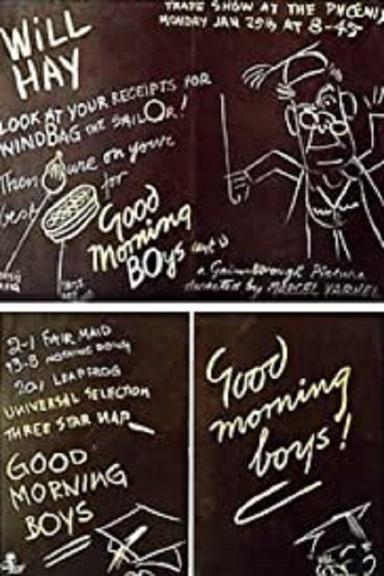 TRADE SHOW AT THE PHOENIX
MONDAY JAN 29th, AT 8-45
WILL
HAY
LOOK AT YOUR RECEIPTS FOR
WINDBAG THE SAILOR!
Then on your
for
Good
Morning
BOYS
a Gainsborough Picture
directed by MARCEL VARNEL
2-1 FAIR MAID
13-8 NOTHING DOWN
20/1 LEAPFROG
UNIVERSAL SELECTION
THREE STAR NAP
GOOD
MORNING
BOYS
Good
morning
boys!